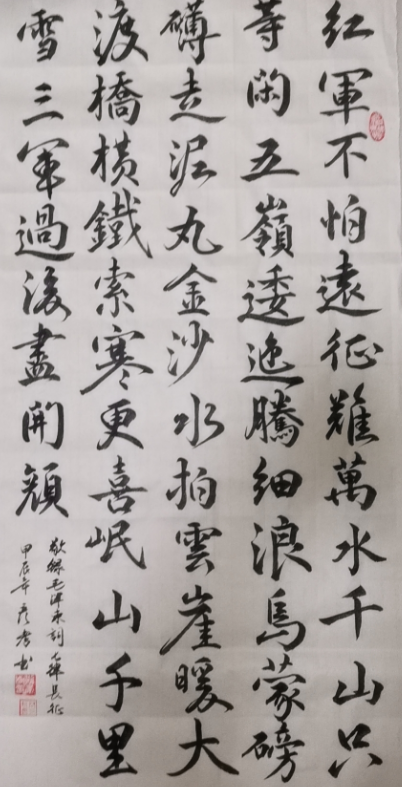 紅軍不怕遠征難萬水千山只
等閑五嶺逶迤騰細浪烏蒙磅
礴走泥丸金沙水拍雲崖暖大
渡橋橫鐵索寒更喜岷山千里
雪三軍過後盡開顏
敬錄毛澤東詞七律長征
甲辰年書